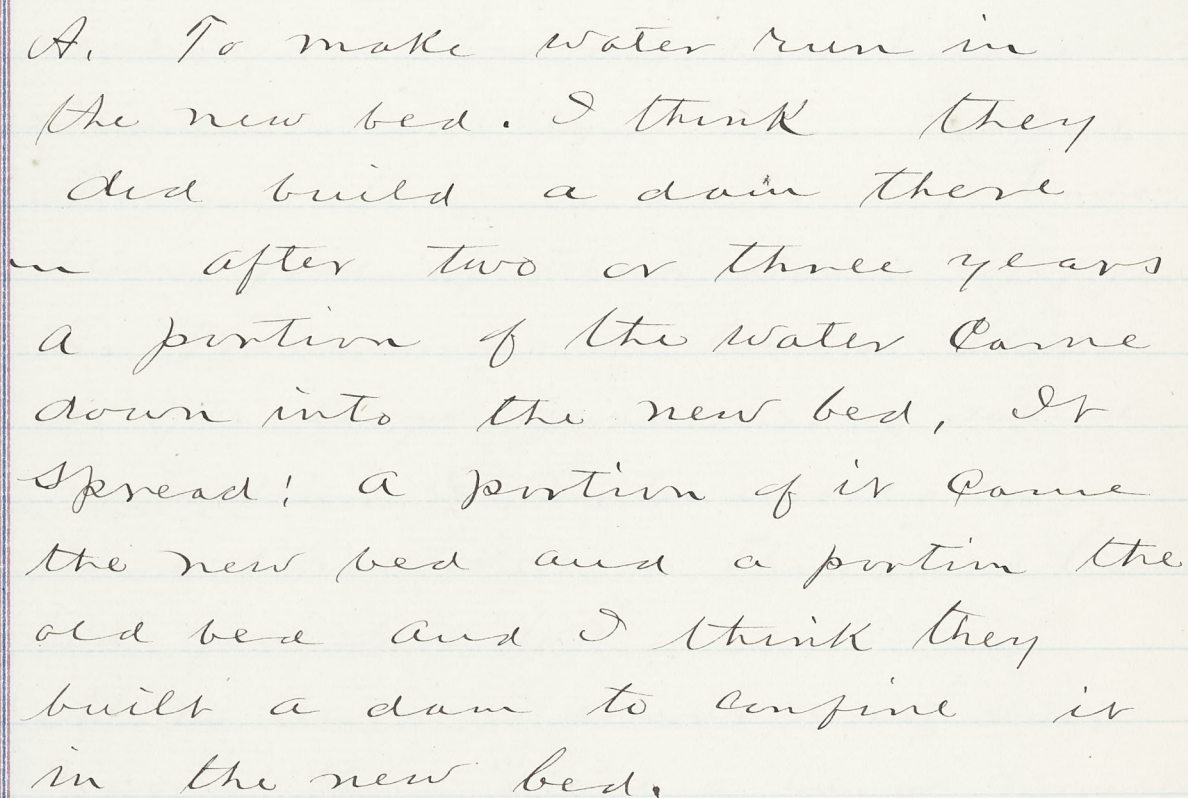 A. To make water run in
the new bed. I think they
did build a dam there
after two or three years
a portion of the water came
down into the new bed, It
spread; a portion of it came
the new bed and a portion the
old bed and I think they
built a dam to confine it
in the new bed.